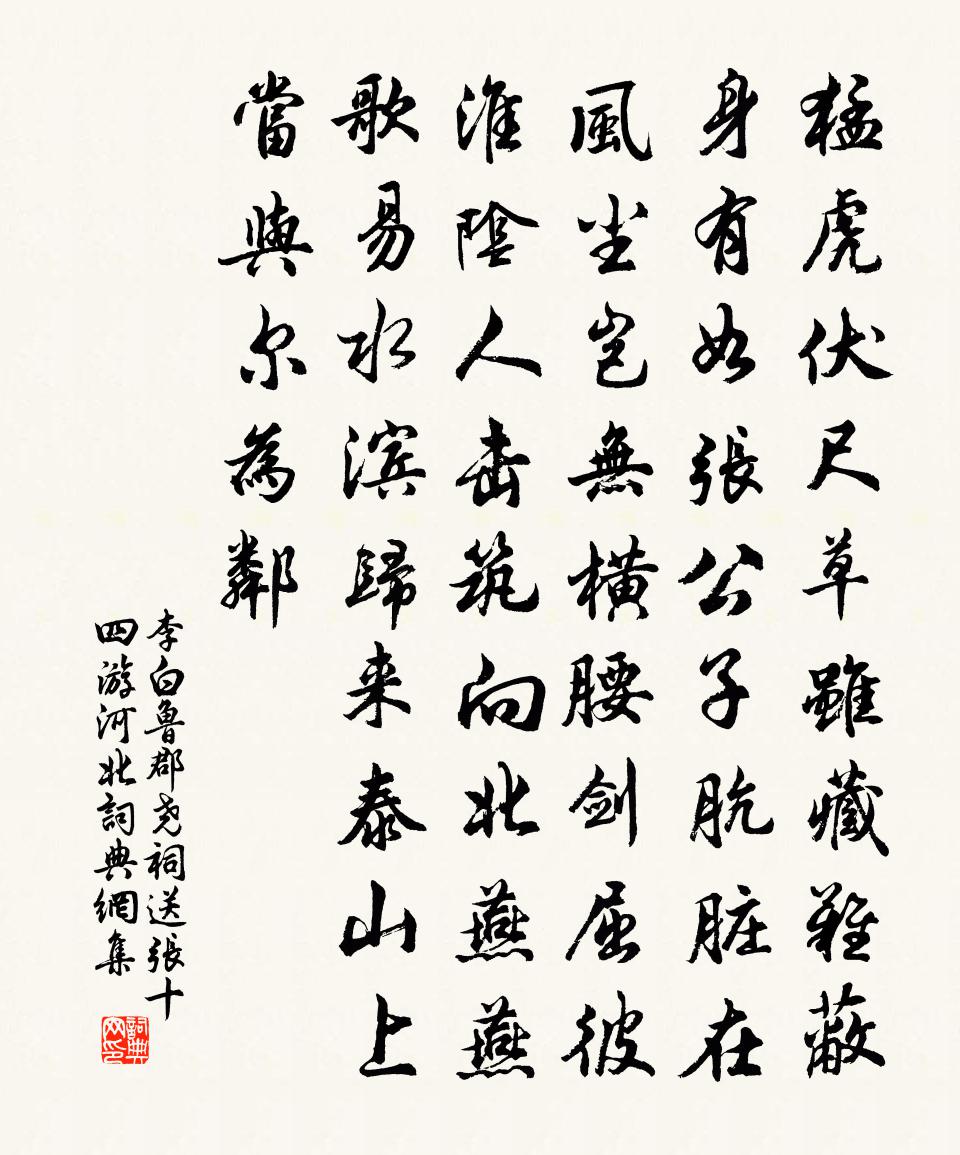 猛虎伏尺草雖藏難蔽
身有如張公子肮脏在
風尘岂無横腰剑屈彼
淮陰人击筑向北燕燕
歌易水滨歸来泰山上
當與尔為鄰
李白魯郡尧祠送張十
四游河北詞典網集
詞典
网印